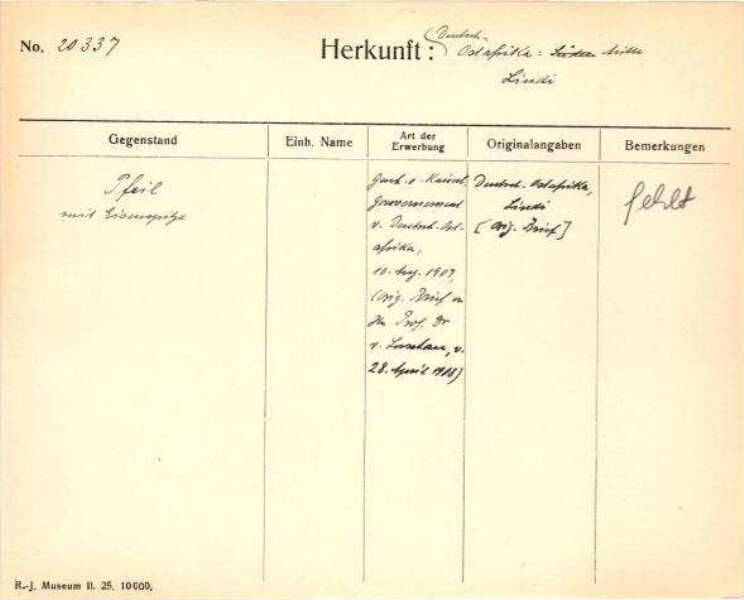 No. 20337
Herkunft: Deutsch-
Ostafrika: Süden Mitte
Lindi
Gegenstand
Einh. Name
Art der
Erwerbung
Originalangaben
Bemerkungen
Pfeil
mit Eisenspitze
Gesch. v. Kaiserl.
Gouvernement
v. Deutsch-Ost-
afrika,
10. 1907,
(Orig. Brief v.
Hn. Prof. Dr
v. Luschan, v.
28. April 1908)
Deutsch-Ostafrika,
Lindi
[Orig. Brief]
fehlt
R.-J. Museum II. 25. 10000.